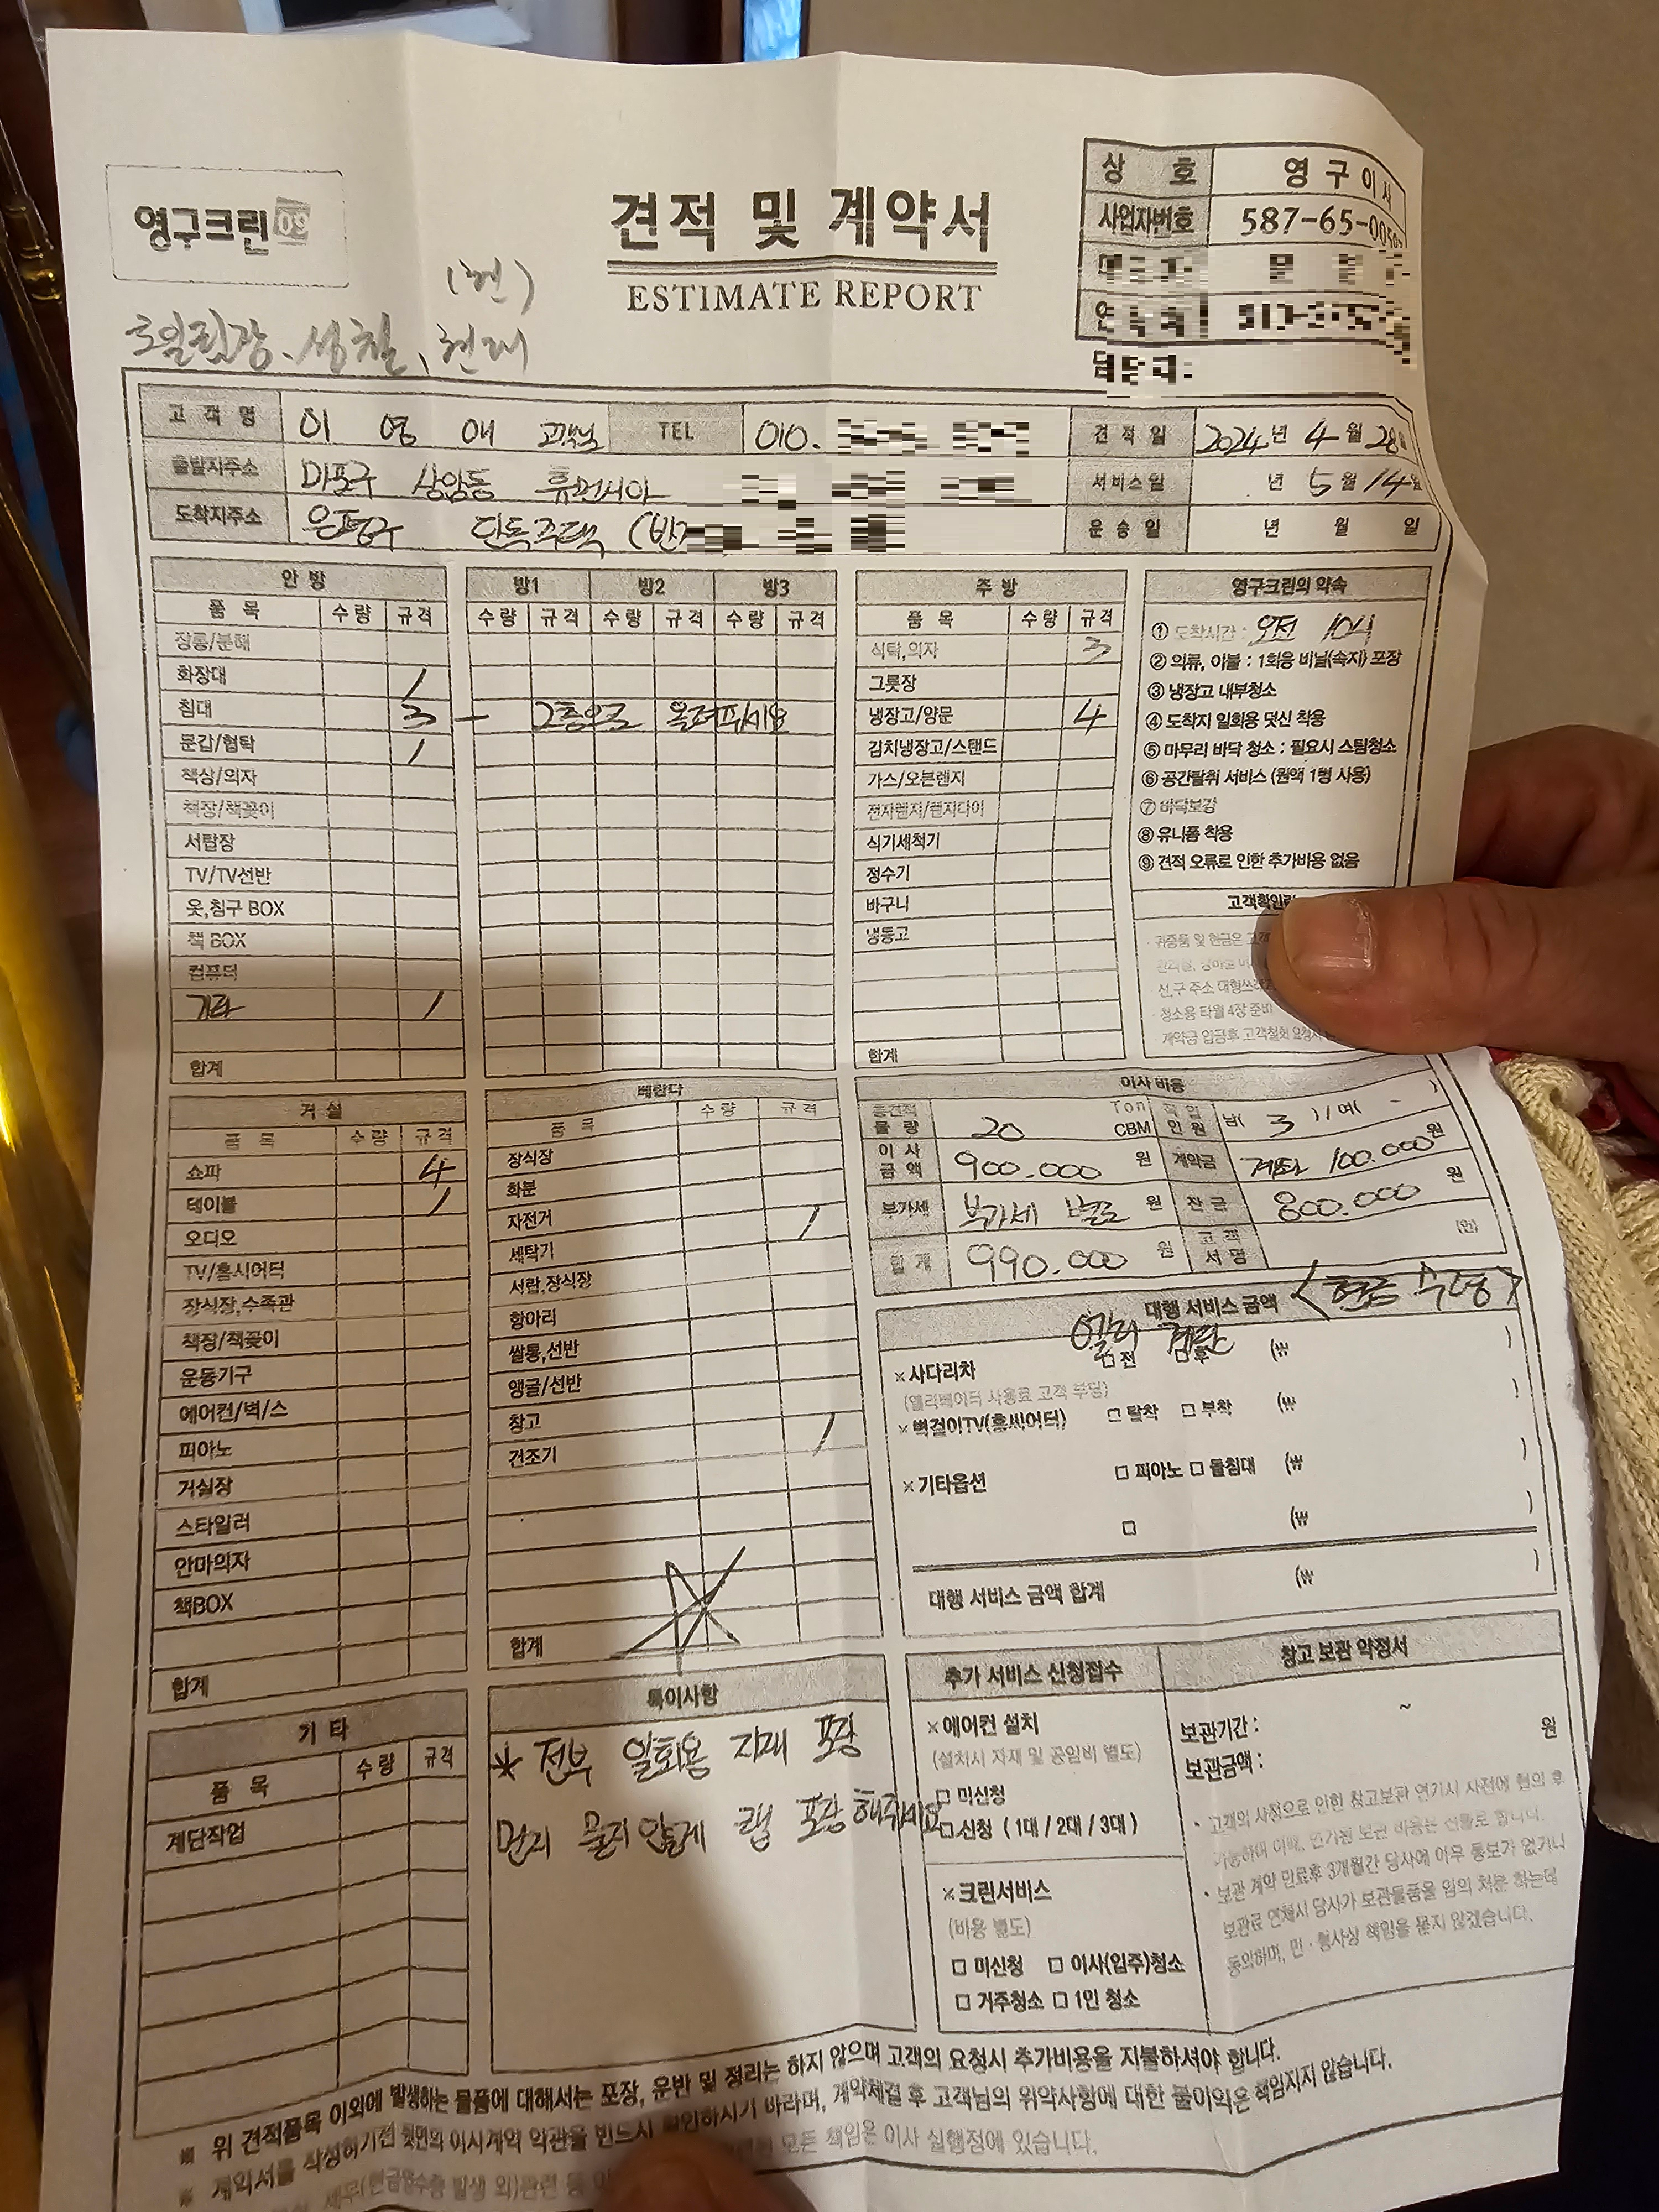 영구크린 09
견적 및 계약서
ESTIMATE REPORT
상 호 영구이사
사업자번호 587-65-00
(현)
성철, 현대
고객명 이 영 애 고객님 TEL 010.
견적일 2024년 4월 28일
출발지주소 마포구 상암동 휴먼시아
서비스일 년 5월 14일
도착지주소 은평구 단독주택 (반
운송일 년 월 일
안 방
품 목 수량 규격
장롱/분해
화장대 1
침대 3 - 2층으로 올려주세요
문갑/협탁 1
책상/의자
책장/책꽂이
서랍장
TV/TV선반
옷,침구 BOX
책 BOX
컴퓨터
기타 1
합계
방1 방2 방3
수량 규격 수량 규격 수량 규격
주 방
품 목 수량 규격
식탁,의자 3
그릇장
냉장고/양문 4
김치냉장고/스탠드
가스/오븐렌지
전자렌지/렌지다이
식기세척기
정수기
바구니
냉동고
합계
영구크린의 약속
① 도착시간 : 오전 10시
② 의류, 이불 : 1회용 비닐(속지) 포장
③ 냉장고 내부청소
④ 도착지 일회용 덧신 착용
⑤ 마무리 바닥 청소 : 필요시 스팀청소
⑥ 공간탈취 서비스 (원액 1병 사용)
⑦ 바닥보강
⑧ 유니폼 착용
⑨ 견적 오류로 인한 추가비용 없음
고객확인란
· 귀중품 및 현금은
· 청소용 타월 4장 준비
계약금 입금후 고객철회
거 실
품 목 수량 규격
쇼파 4
테이블 1
오디오
TV/홈시어터
장식장,수족관
책장/책꽂이
운동기구
에어컨/벽/스
피아노
거실장
스타일러
안마의자
책BOX
합계
베란다
품 목 수량 규격
장식장
화분
자전거 1
세탁기
서랍,장식장
항아리
쌀통,선반
앵글/선반
창고
건조기 1
합계
이사 비용
총견적 물량 20 Ton CBM 작업 인원 남( 3 ) / 여( - )
이사 금액 900.000 원 계약금 계좌 100.000 원
부가세 부가세 별도 원 잔금 800.000 원
합 계 990.000 원 고객 서명 (인)
대행 서비스 금액 <현금 수령>
× 사다리차 □ 전 □ 후 (₩ )
(엘리베이터 사용료 고객 부담)
× 벽걸이TV(홈씨어터) □ 탈착 □ 부착 (₩ )
× 기타옵션 □ 피아노 □ 돌침대 (₩ )
□ (₩ )
대행 서비스 금액 합계 (₩ )
기 타
품 목 수량 규격
계단작업
특이사항
* 전부 일회용 자재 포장
먼지 묻지 않게 랩 포장해주세요
추가 서비스 신청접수
× 에어컨 설치
(설치시 자재 및 공임비 별도)
□ 미신청
□ 신청 ( 1대 / 2대 / 3대 )
× 크린서비스
(비용 별도)
□ 미신청 □ 이사(입주)청소
□ 거주청소 □ 1인 청소
창고 보관 약정서
보관기간 : ~
보관금액 : 원
· 고객의 사정으로 인한 창고보관 연기시 사전에 협의 후
가능하며 이때, 연기된 보관 비용은 선불로 합니다.
· 보관 계약 만료후 3개월간 당사에 아무 통보가 없거나
보관료 연체시 당사가 보관물품을 임의 처분 하는데
동의하며, 민·형사상 책임을 묻지 않겠습니다.
※ 위 견적품목 이외에 발생하는 물품에 대해서는 포장, 운반 및 정리는 하지 않으며 고객의 요청시 추가비용을 지불하셔야 합니다.
※ 계약서를 작성하기전 뒷면의 이사계약 약관을 반드시 확인하시기 바라며, 계약체결 후 고객님의 위약사항에 대한 불이익은 책임지지 않습니다.
세무(현금영수증 발생 외)관련 등 모든 책임은 이사 실행점에 있습니다.